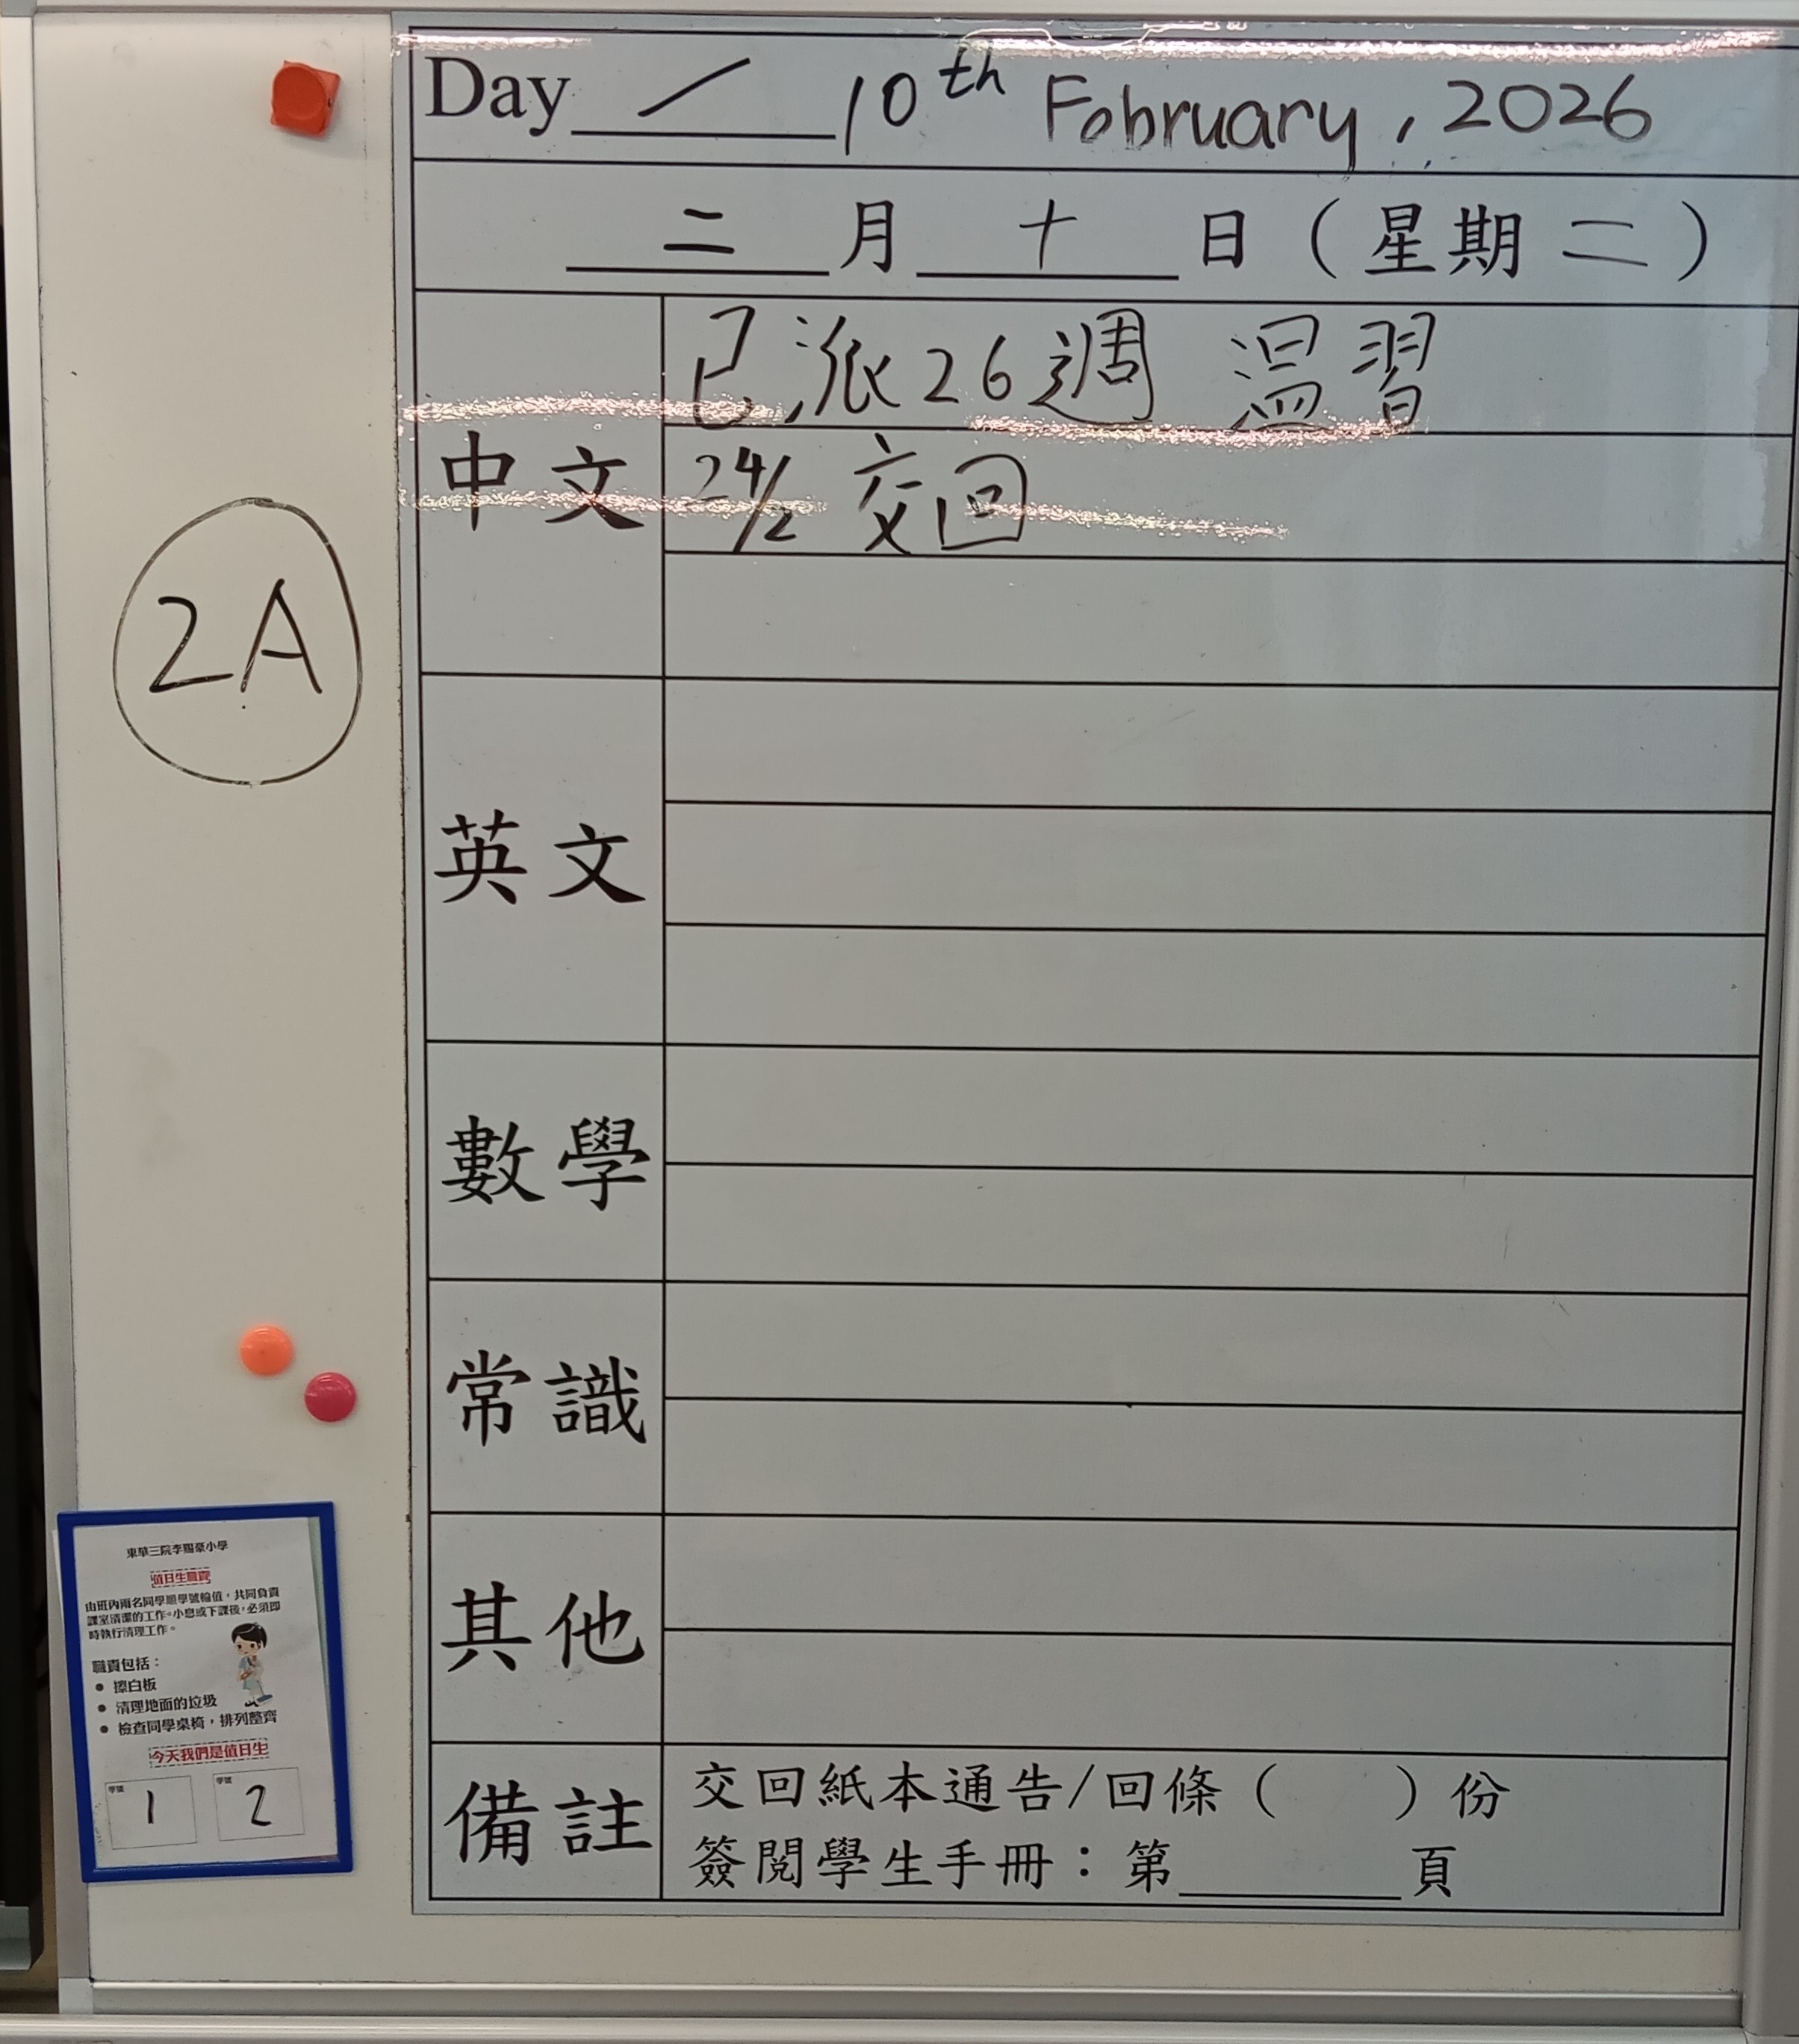 Day / 10th February, 2026
二 月 十 日 (星期 二)
已派26週 温習
中文
24/2 交回
2A
英文
數學
常識
其他
備註
交回紙本通告/回條( )份
簽閱學生手冊:第 頁
東華三院李賜豪小學
值日生職責
由班內兩名同學順學號輪值,共同負責
課室清潔的工作。小息或下課後,必須即
時執行清理工作。
職責包括:
● 擦白板
● 清理地面的垃圾
● 檢查同學桌椅,排列整齊
今天我們是值日生
學號 學號
1 2